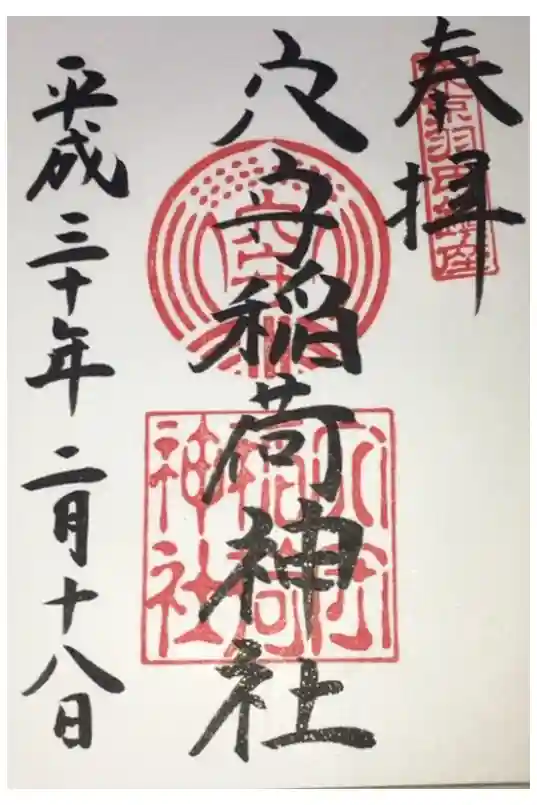 奉拝
穴守稲荷神社
平成三十年二月十八日
東京羽田鎮座
穴守
稲荷
神社